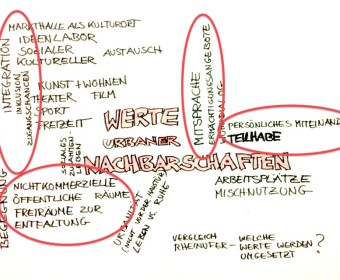 MARKTHALLE ALS KULTURORT
IDEENLABOR
SOZIALER
KULTURELLER AUSTAUSCH
KUNST + WOHNEN
THEATER FILM
SPORT
FREIZEIT
INTEGRATION
INKLUSION
MITSPRACHE
ERMÄCHTIGUNGSANGEBOTE
PERSÖNLICHES MITEINAND
TEILHABE
WERTE
URBANER
NACHBARSCHAFTEN
SOZIALES
ZUSAMMEN-
LEBEN
BEGEGNUNG
NICHTKOMMERZIELLE
ÖFFENTLICHE RÄUME
FREIRÄUME ZUR
ENTFALTUNG
URBANITÄT
(NICHT VOR DER HAUSTÜR)
LEBEN VS. RUHE
ARBEITSPLÄTZE
MISCHNUTZUNG
VERGLEICH – WELCHE
RHEINUFER – WERTE WERDEN
UMGESETZT ?